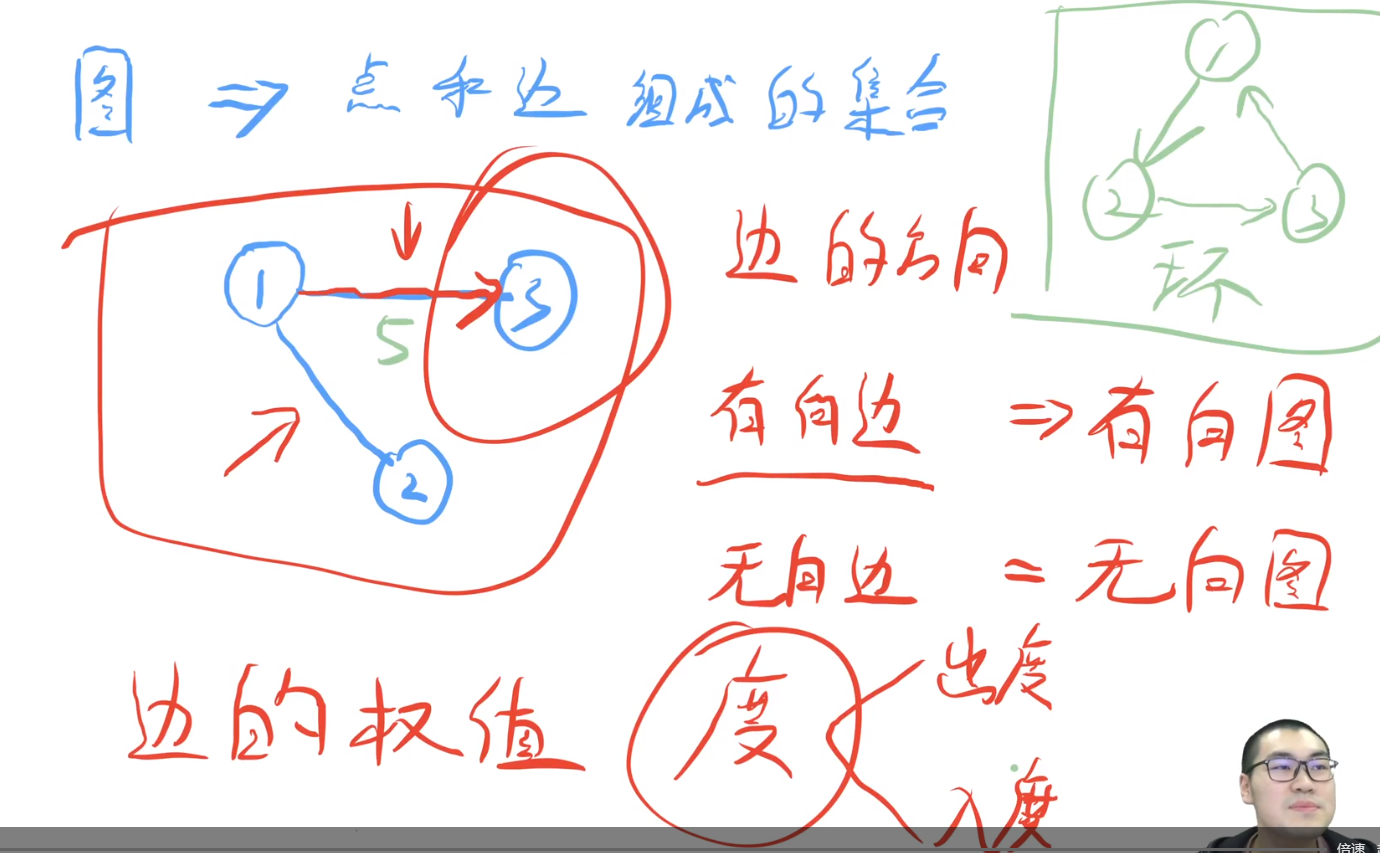 图 ⇒ 点和边组成的集合
1
2
3
环
1
3
5
2
边的方向
有向边 ⇒ 有向图
无向边 = 无向图
边的权值
度
出度
入度
倍速